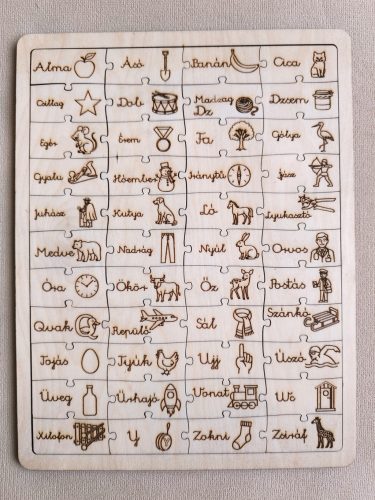 Alma Ásó Banán Cica
Csillag Dob Madzag Dzsem
Dz
Egér Érem Fa Gólya
Gyalu Hóember Iránytű Íjász
Juhász Kutya Ló Lyukasztó
Medve Nadrág Nyúl Orvos
Óra Ökör Őz Postás
Quak Repülő Sál Szánkó
Tojás Tyúk Ujj Úszó
Üveg Űrhajó Vonat Wc
Xilofon Y Zokni Zsiráf